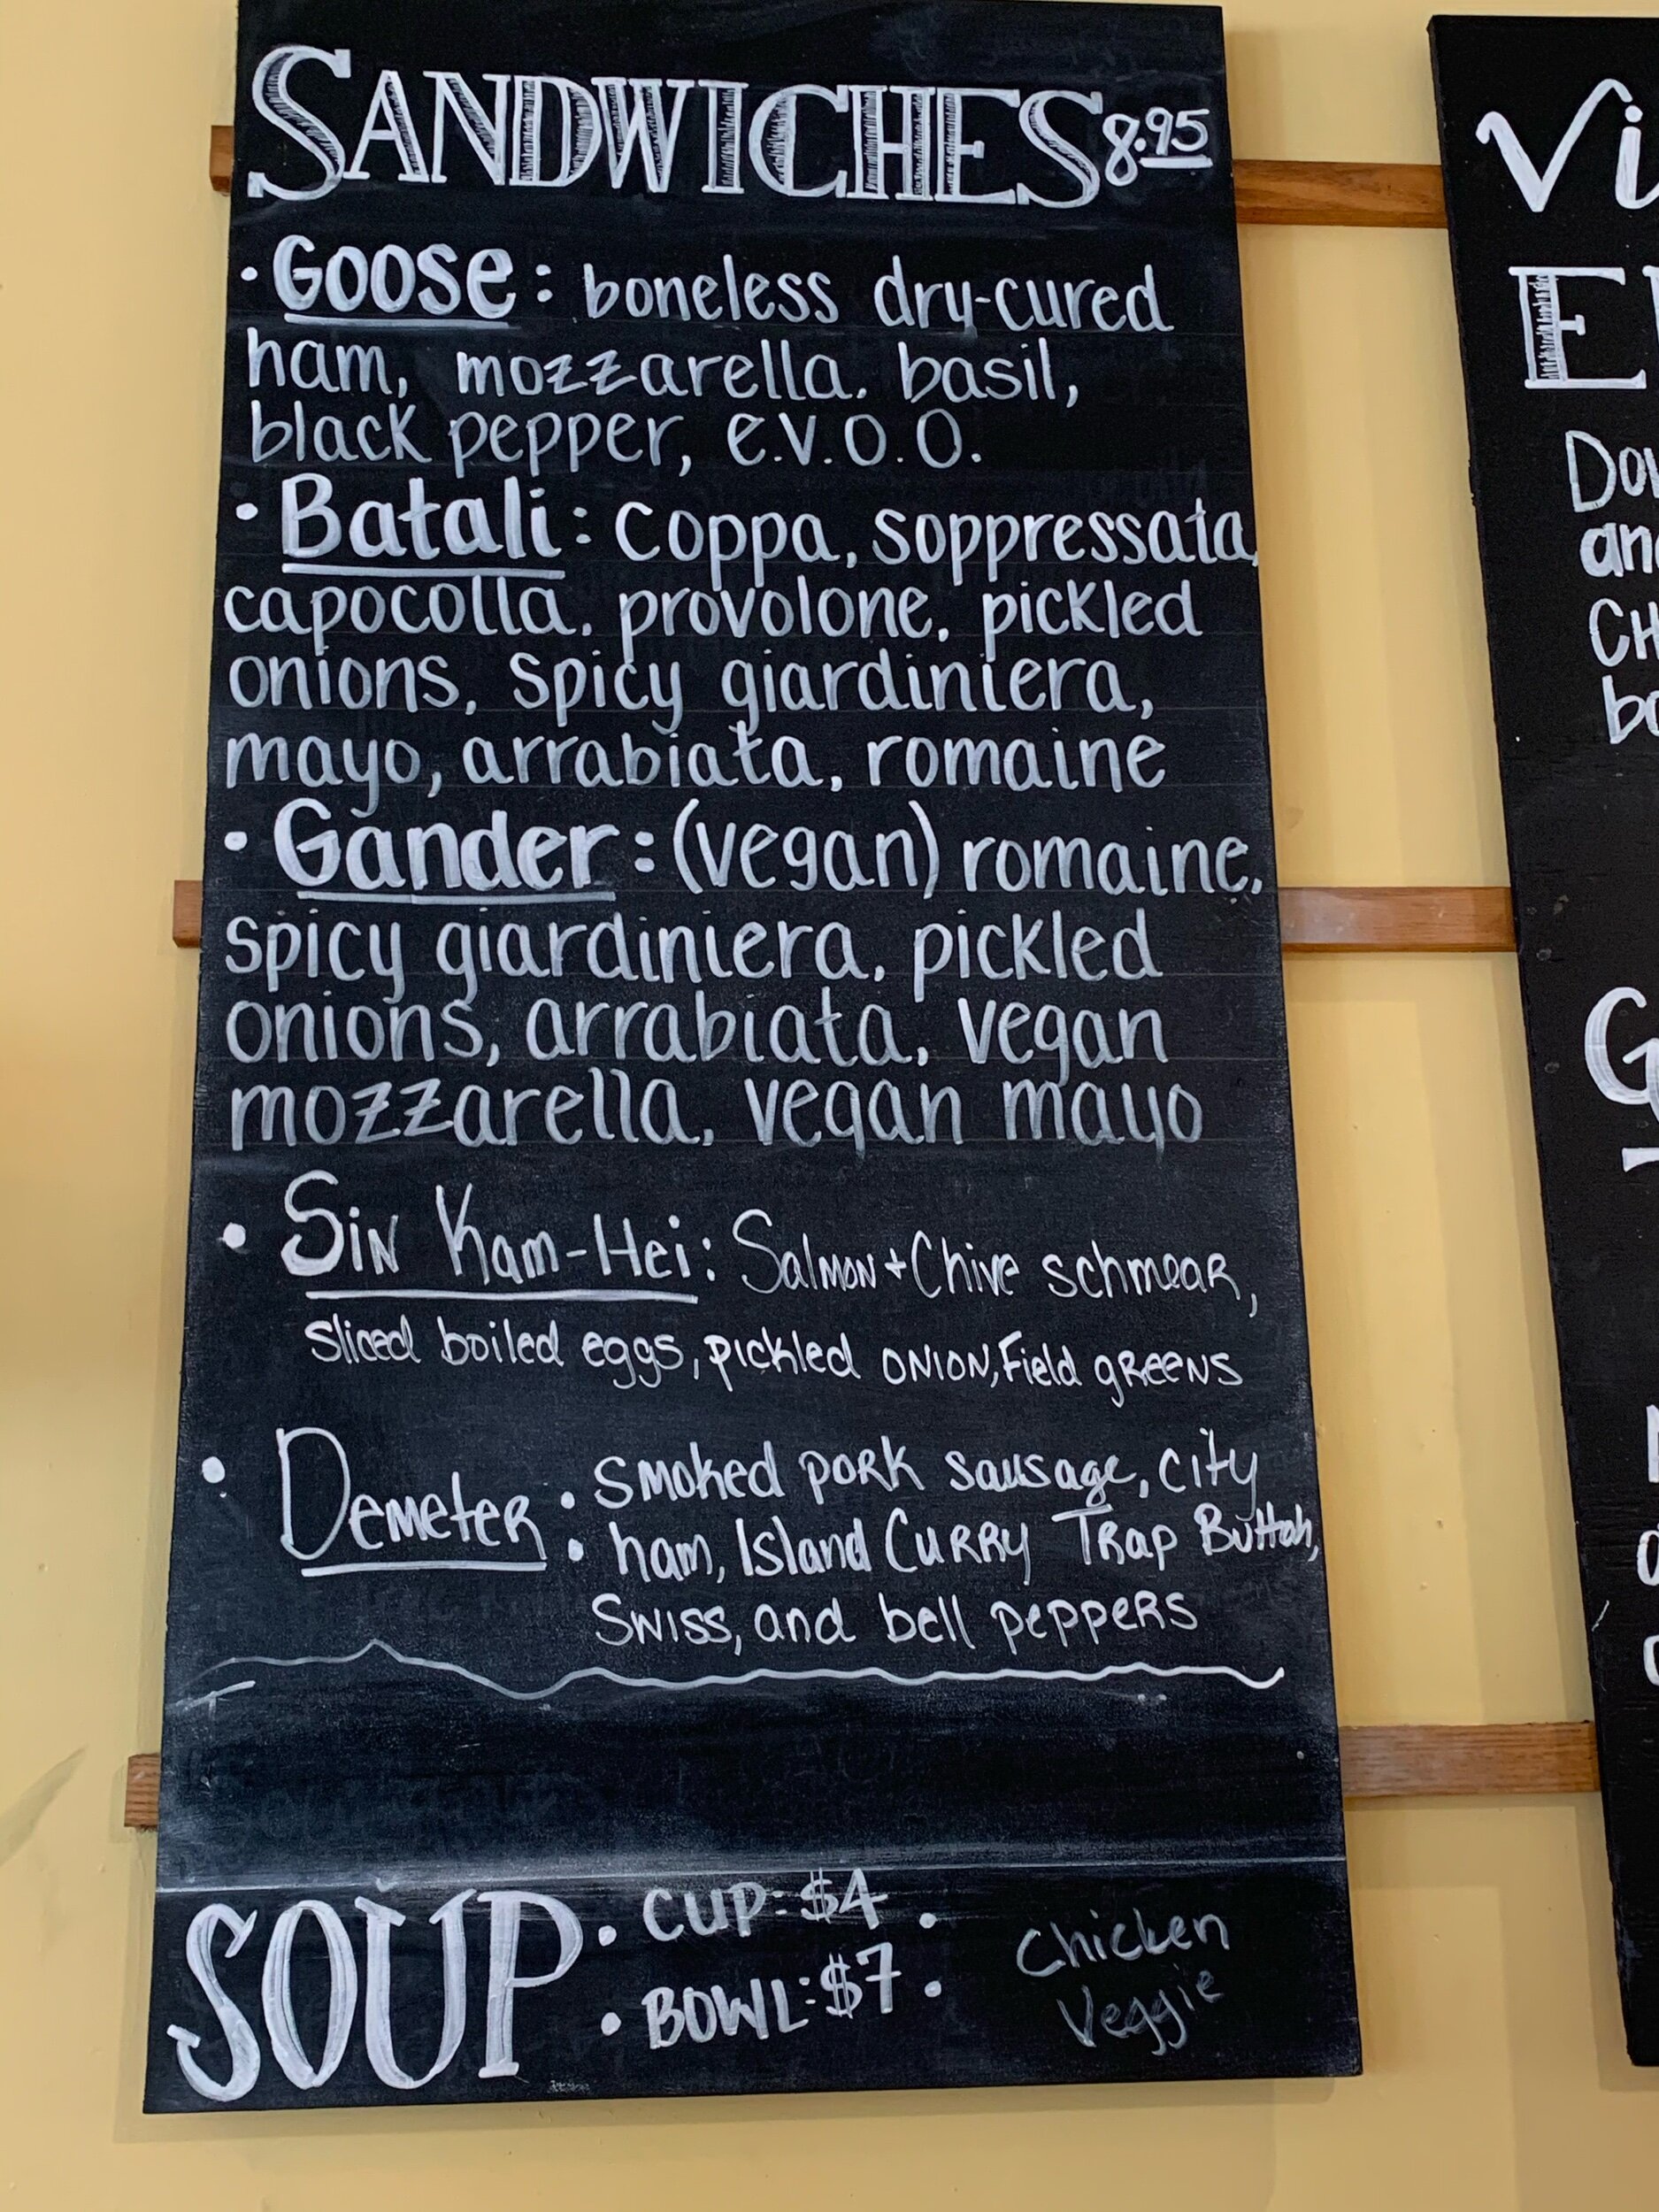 SANDWICHES 8.95
• Goose: boneless dry-cured
ham, mozzarella, basil,
black pepper, e.v.o.o.
• Batali: coppa, soppressata,
capocolla, provolone, pickled
onions, spicy giardiniera,
mayo, arrabiata, romaine
• Gander: (vegan) romaine,
spicy giardiniera, pickled
onions, arrabiata, vegan
mozzarella, vegan mayo
• Sin Kam-Hei: Salmon + Chive schmear,
sliced boiled eggs, pickled onion, Field greens
• Demeter: smoked pork sausage, city
ham, Island Curry Trap Buttah,
Swiss, and bell peppers
SOUP • CUP: $4 •
• BOWL: $7 •
Chicken
Veggie
Vi
E
an
CH
G